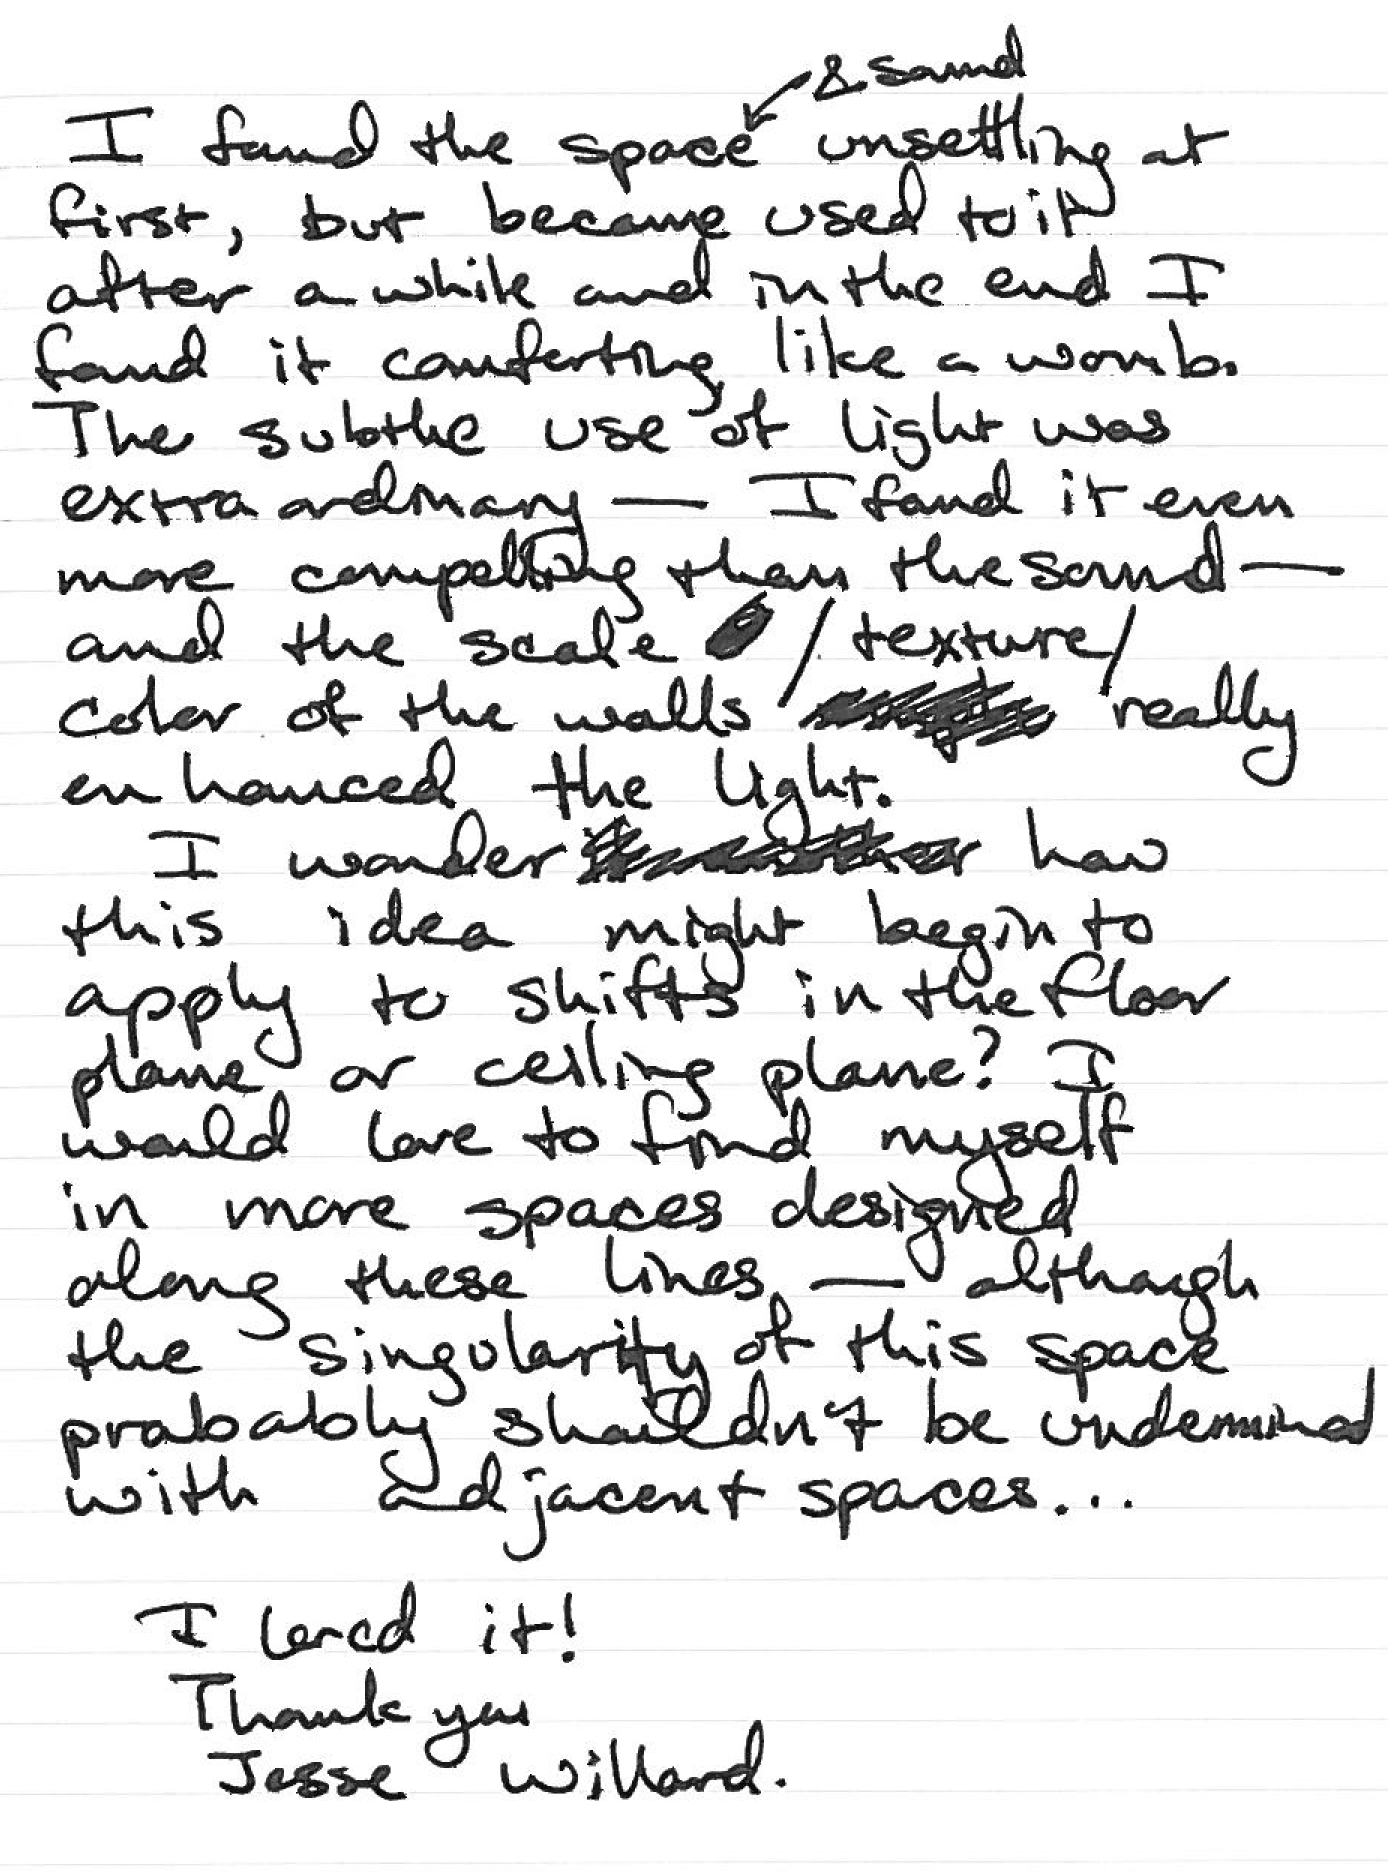 & sound
I found the space unsettling at
first, but became used to it
after a while and in the end I
found it comforting, like a womb.
The subtle use of light was
extraordinary — I found it even
more compelling than the sound —
and the scale / texture /
color of the walls really
enhanced the light.
I wonder how
this idea might begin to
apply to shifts in the floor
plane or ceiling plane? I
would love to find myself
in more spaces designed
along these lines — although
the singularity of this space
probably shouldn't be undermined
with adjacent spaces...
I loved it!
Thank you
Jesse Willard.